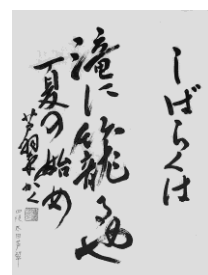 しばらくは
滝に籠るや
夏の始め
芭翠かく